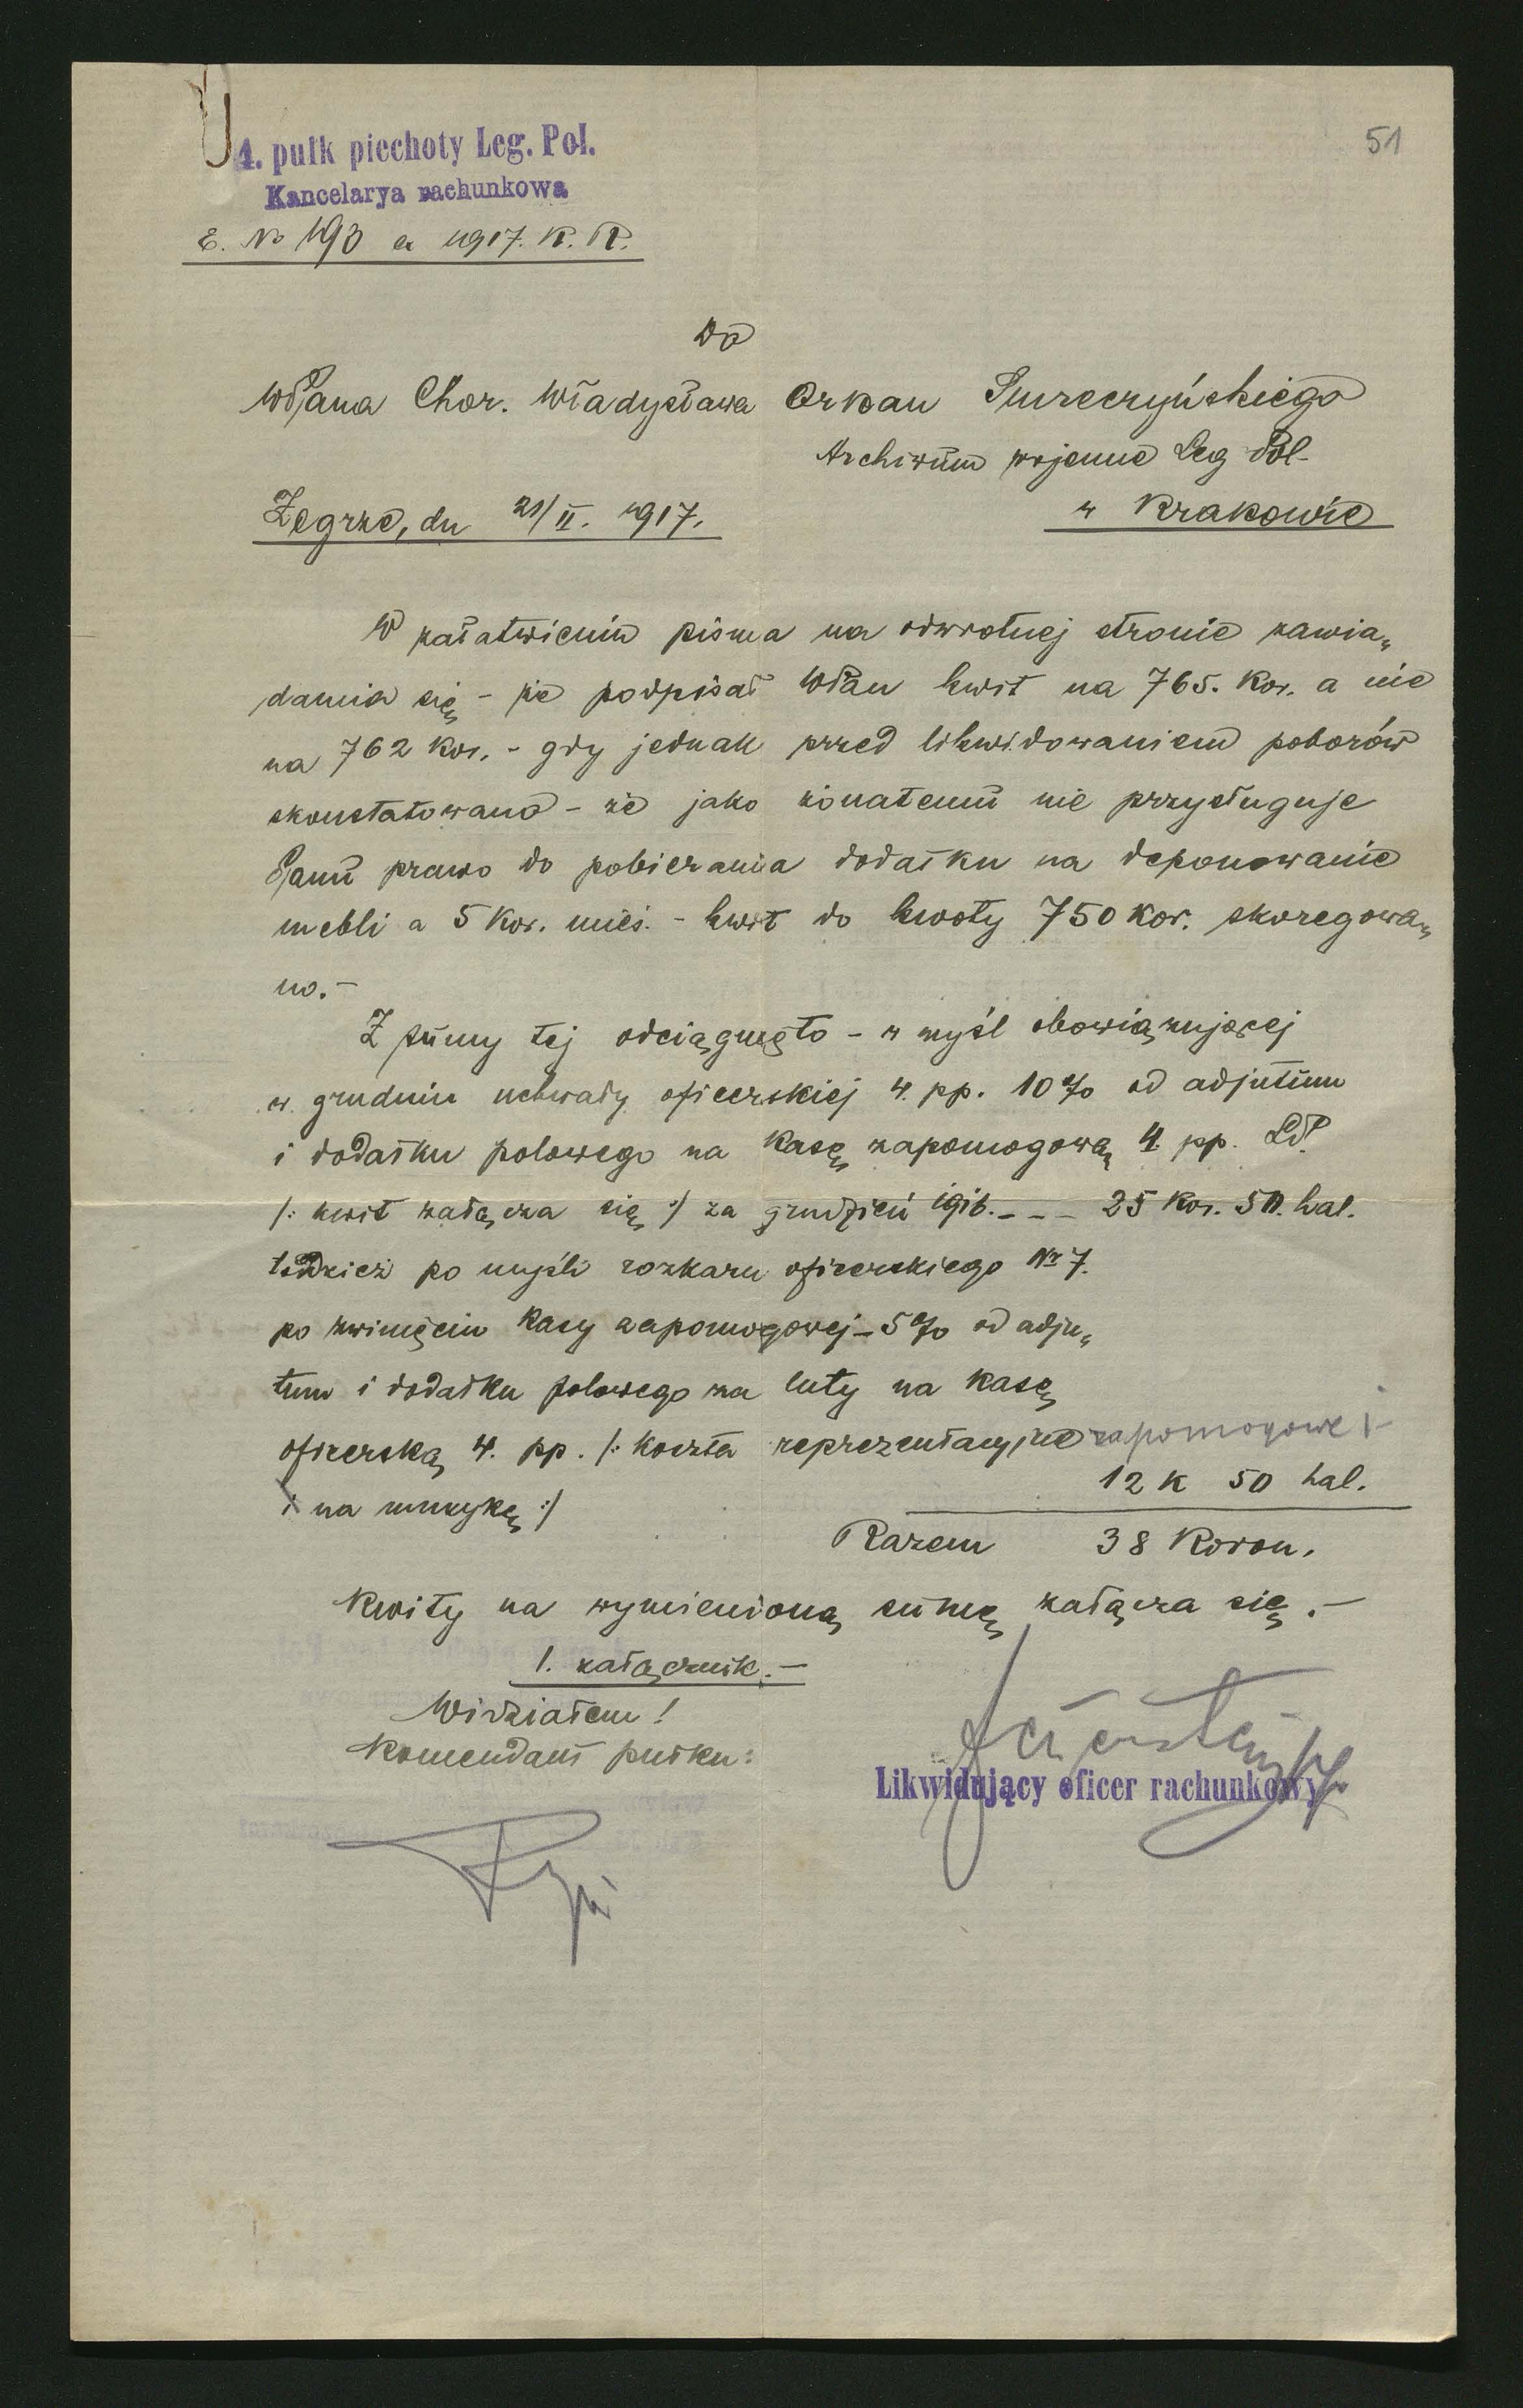 51
4. pułk piechoty Leg. Pol.
Kancelarya rachunkowa
E. No 193 ex 1917. K. R.
Do
WPana Chor. Władysława Orkan Smreczyńskiego
Archiwum wojenne Leg Pol.
w Krakowie
Zegrze, dn 21/II. 1917.
W załatwieniu pisma na odwrotnej stronie zawia„
damia się – że podpisał WPan kwit na 765. Kor. a nie
na 762 Kor. – gdy jednak przed likwidowaniem poborów
skonstatowano – że jako żonatemu nie przysługuje
Panu prawo do pobierania dodatku na deponowanie
mebli a 5 Kor. mies. – kwit do kwoty 750 kor. skoregowa„
no.–
Z sumy tej odciągnięto – w myśl obowiązującej
w grudniu uchwały oficerskiej 4. pp. 10% od adjutum
i dodatku polowego na Kasę zapomogową 4. pp. LP.
/: kwit załącza się :/ za grudzień 1916. – – – 25 Kor. 50. hal.
tudzież po myśli rozkazu oficerskiego Nr 7.
po zwinięciu Kasy zapomogowej – 5% od adju„
tum i dodatku polowego za luty na Kasę
oficerską 4. pp. /: koszta reprezentacyjne zapomogowe i
i na muzykę :/
12 K 50 hal.
Razem 38 Koron.
Kwity na wymienioną sumę załącza się.–
1. załącznik.–
Widziałem!
Komendant pułku:
Likwidujący oficer rachunkowy